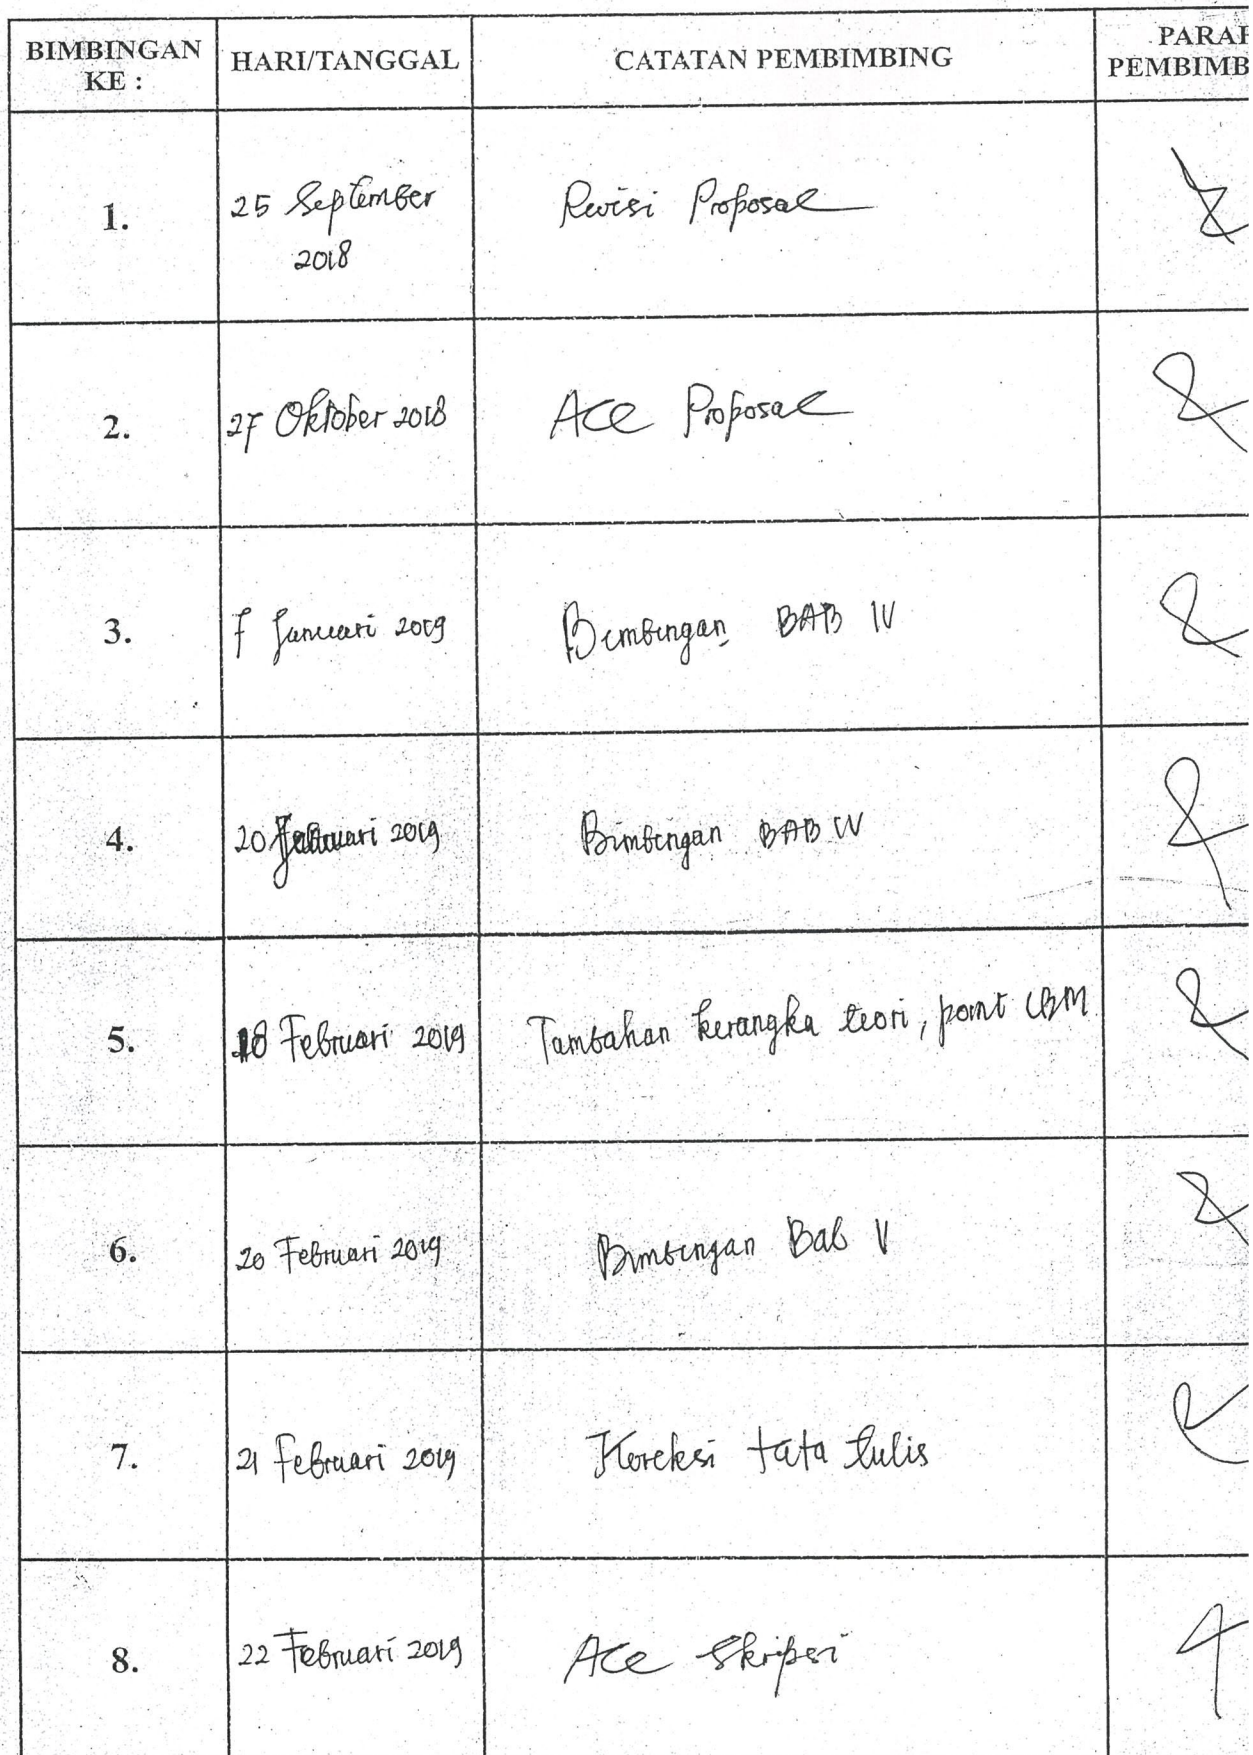 BIMBINGAN
KE :
HARI/TANGGAL
CATATAN PEMBIMBING
PARAF
PEMBIMB
1.
25 September
2018
Revisi Proposal
2.
27 Oktober 2018
Acc Proposal
3.
7 Januari 2019
Bimbingan BAB IV
4.
20 Januari 2019
Bimbingan BAB IV
5.
18 Februari 2019
Tambahan kerangka teori, point CBM
6.
20 Februari 2019
Bimbingan Bab V
7.
21 Februari 2019
Koreksi tata tulis
8.
22 Februari 2019
Acc Skripsi